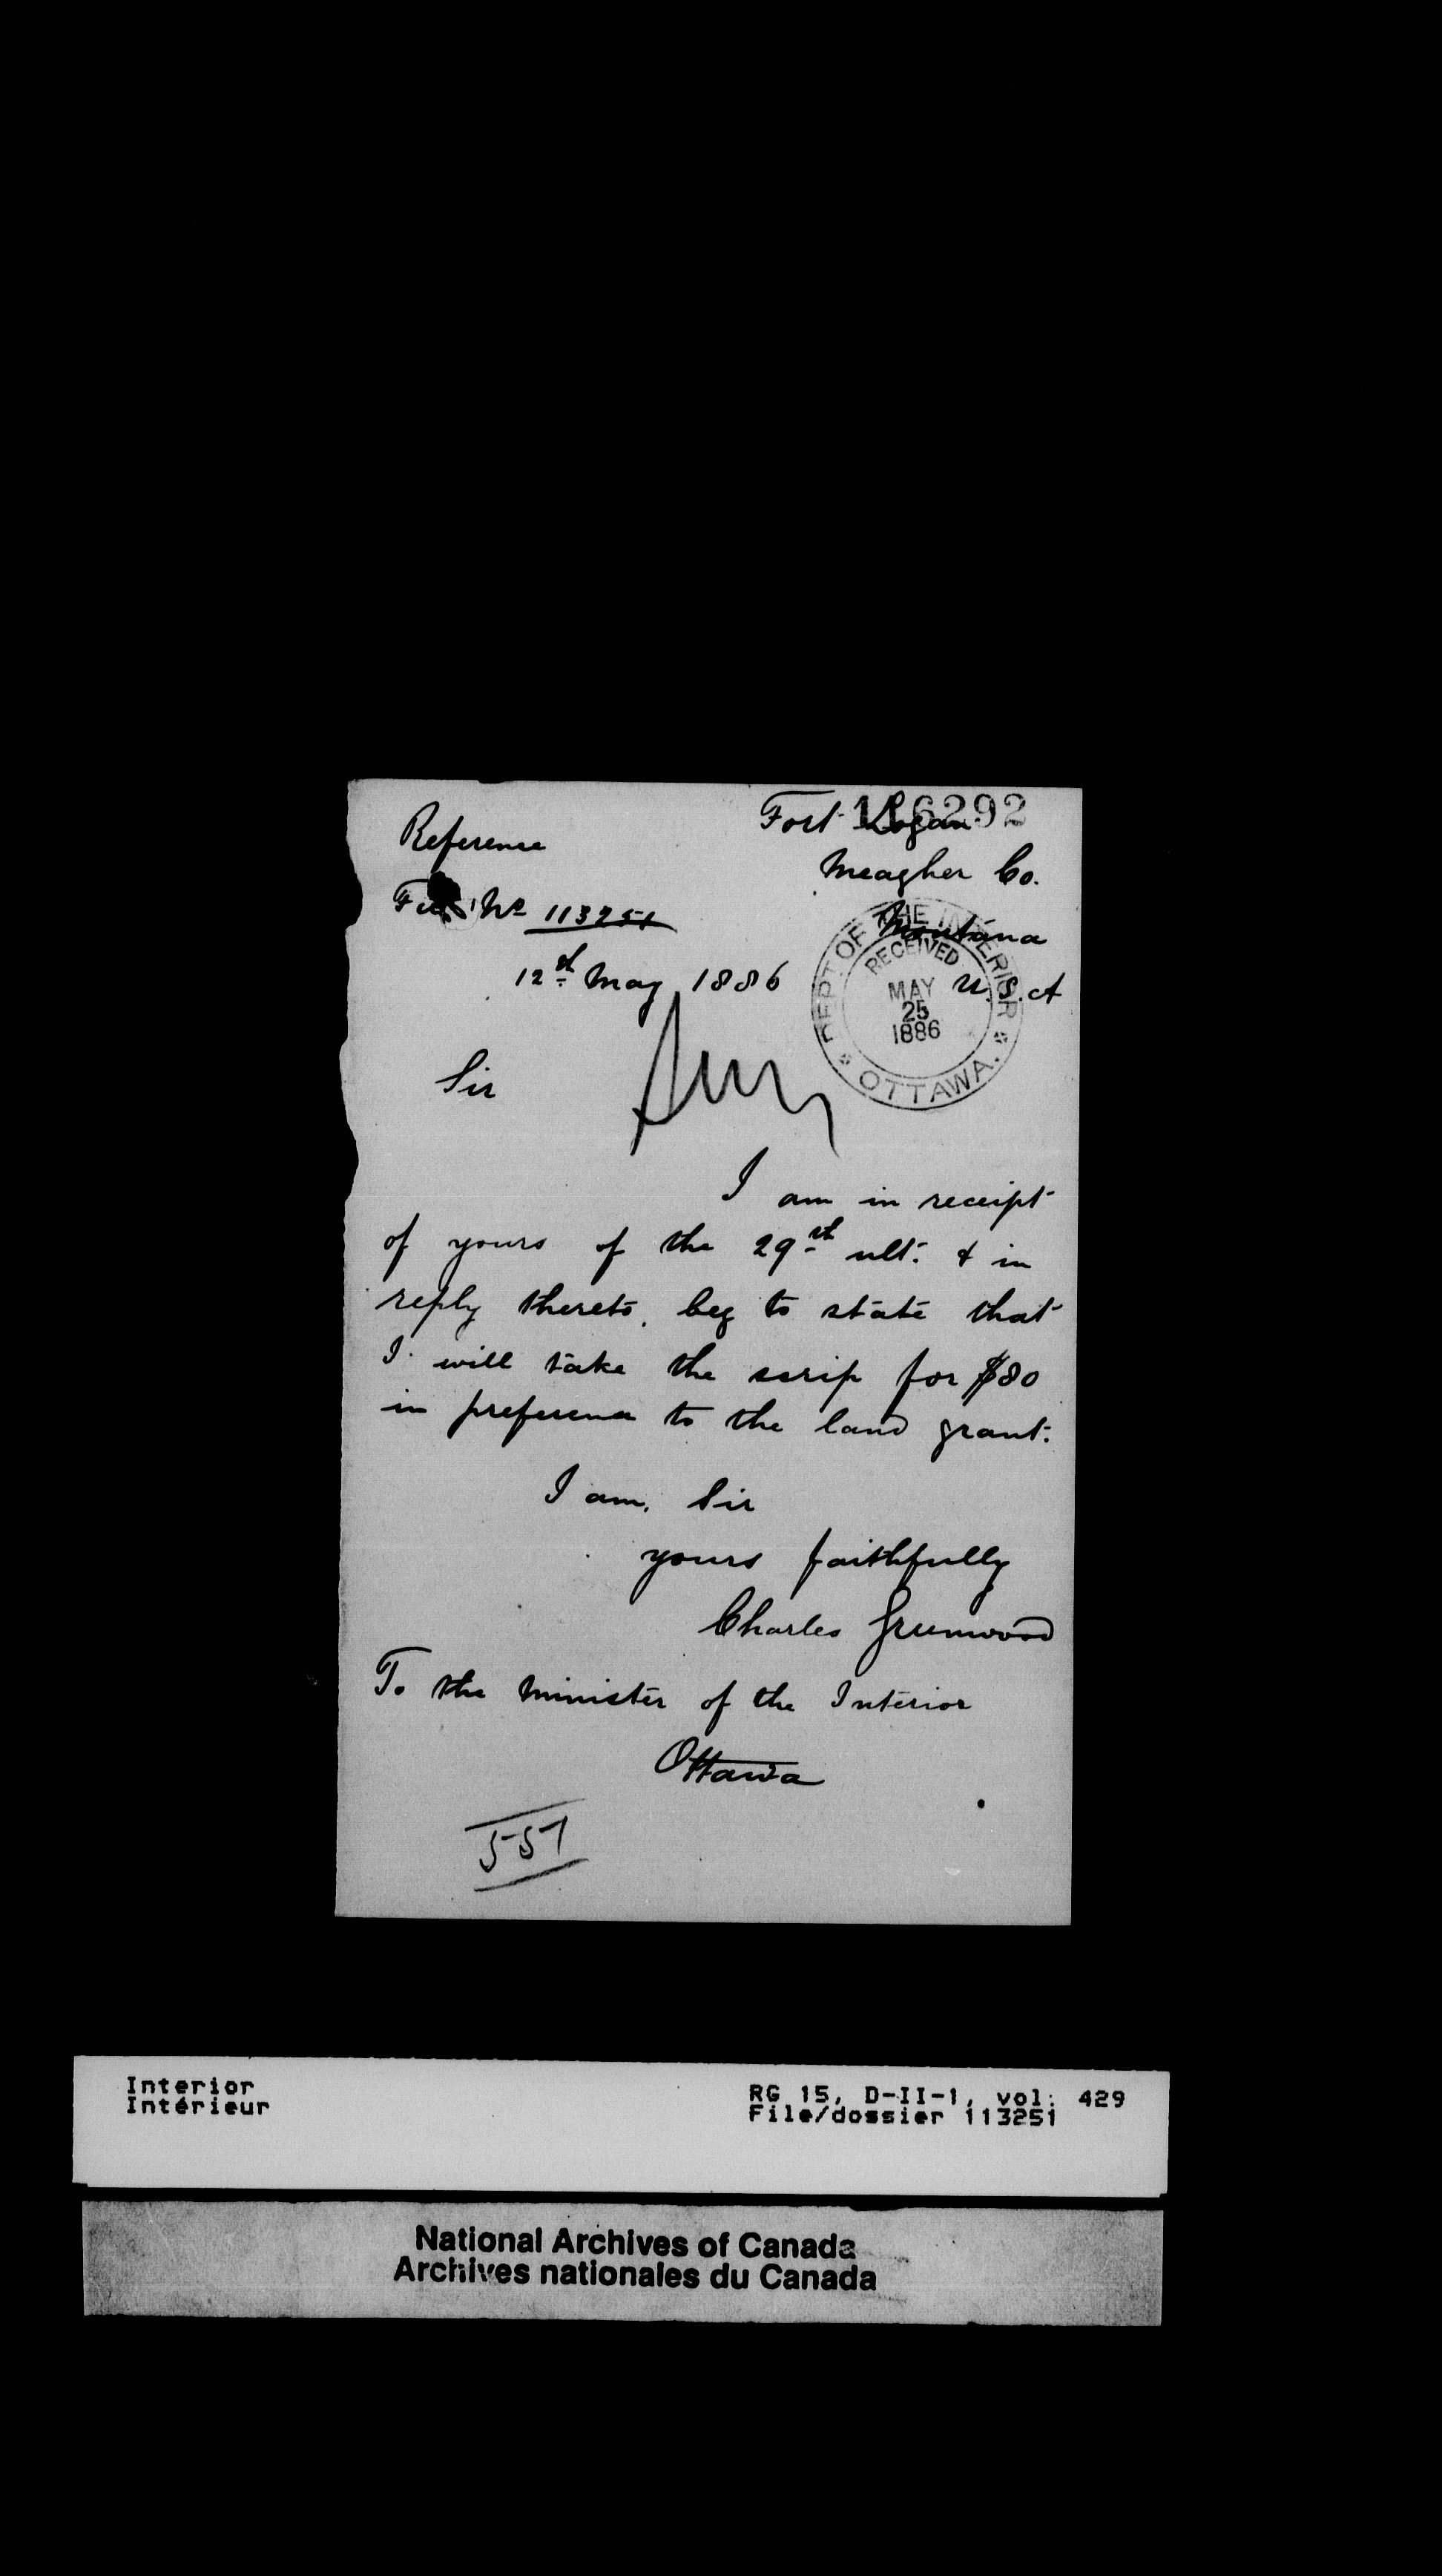 116292
Fort Logan
Reference
Meagher Co.
File No 113251
Montana
12th May 1886
U.S.A
DEPT OF THE INTERIOR
RECEIVED
MAY
25
1886
OTTAWA.
Sir
I am in receipt
of yours of the 29th ult. & in
reply thereto, beg to state that
I will take the scrip for $80
in preference to the land grant.
I am, Sir
yours faithfully
Charles Greenwood
To the Minister of the Interior
Ottawa
557
Interior
Intérieur
RG 15, D-II-1, vol. 429
File/dossier 113251
National Archives of Canada
Archives nationales du Canada